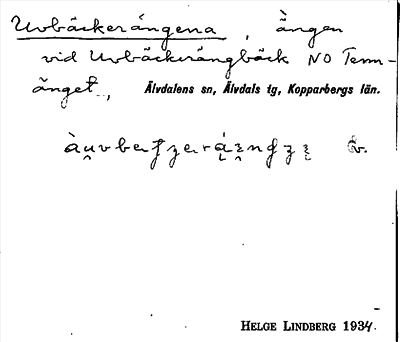 Uvbäckerängena, ängen
vid Uvbäckerängbäck NO Tenn-
änget, Älvdalens sn, Älvdals tg, Kopparbergs län.
HELGE LINDBERG 1934.